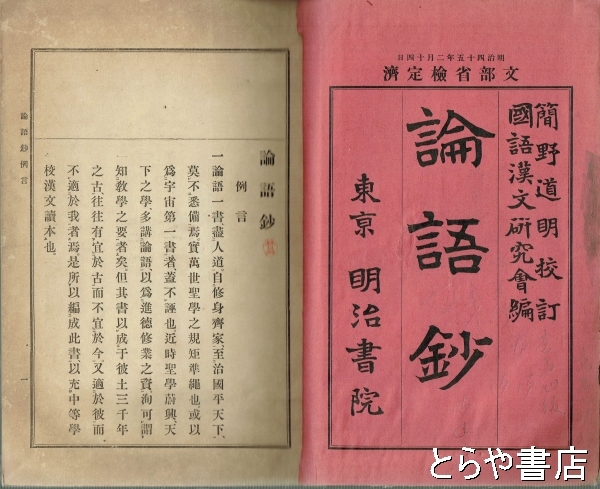 明治四十五年二月十四日
文部省檢定濟
簡野道明校訂
國語漢文研究會編
論語鈔
東京 明治書院
論語鈔
例言
一論語一書、盡人道、自修身齊家、至治國平天下、
莫不悉備焉、實萬世聖學之規矩準繩也、或以
爲宇宙第一書者、蓋不誣也、近時聖學蔚興、天
下之學、多講論語、以爲進德修業之資、洵可謂
知敎學之要者矣、但其書以成于彼土三千年
之古、往往有宜於古而不宜於今、又適於彼而
不適於我者焉、是所以編成此書、以充中等學
校漢文讀本也、
論語鈔例言
一
とらや書店